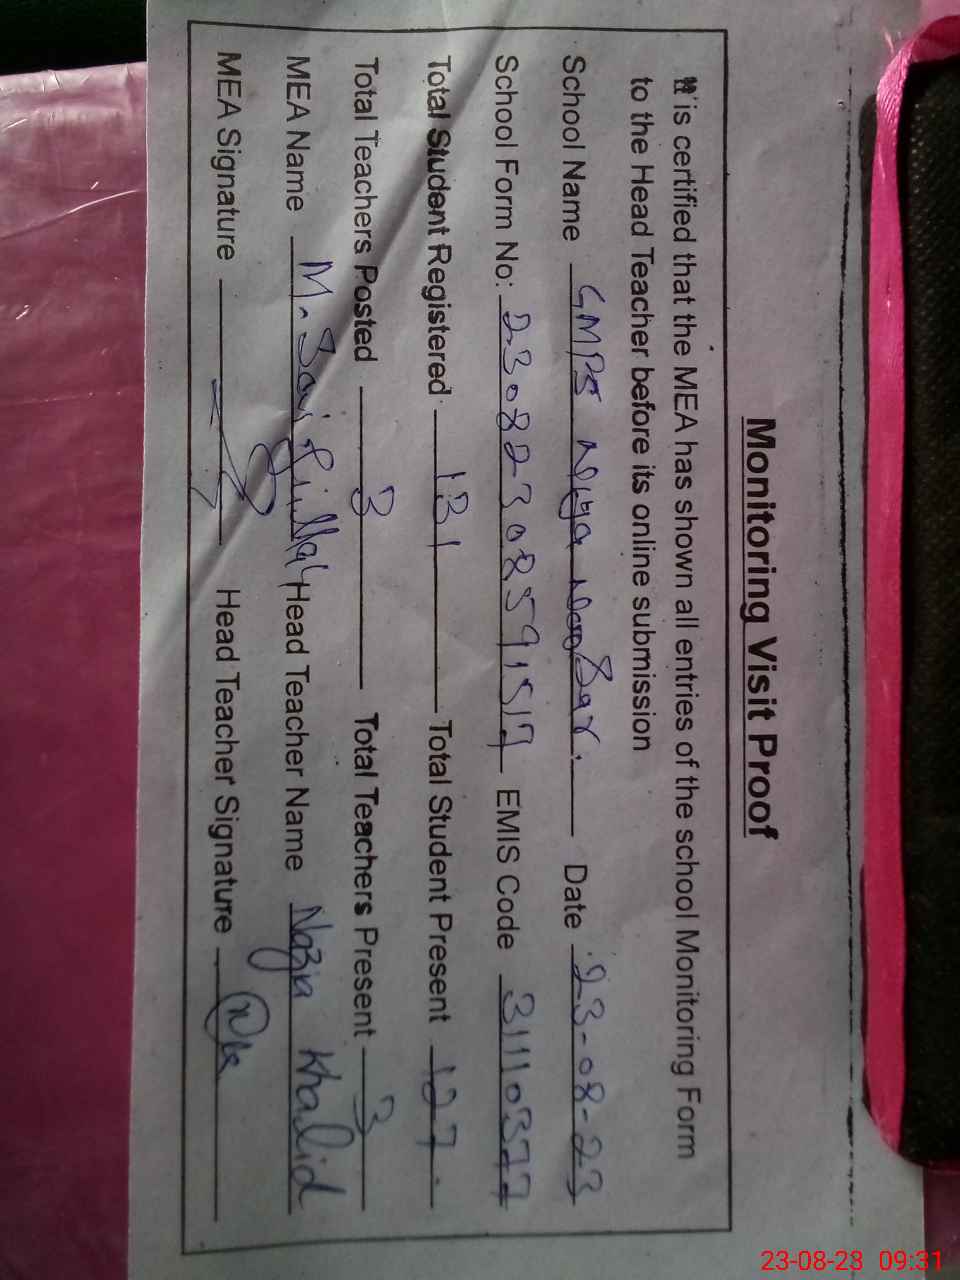 Monitoring Visit Proof
It is certified that the MEA has shown all entries of the school Monitoring Form
to the Head Teacher before its online submission
School Name GMPS Date 23-08-23
School Form No: 23082308591517 EMIS Code 31110377
Total Student Registered 131 Total Student Present 127.
Total Teachers Posted 3 Total Teachers Present 3
MEA Name M. Saifullah Head Teacher Name Nazia Khalid
MEA Signature Head Teacher Signature
23-08-23 09:31